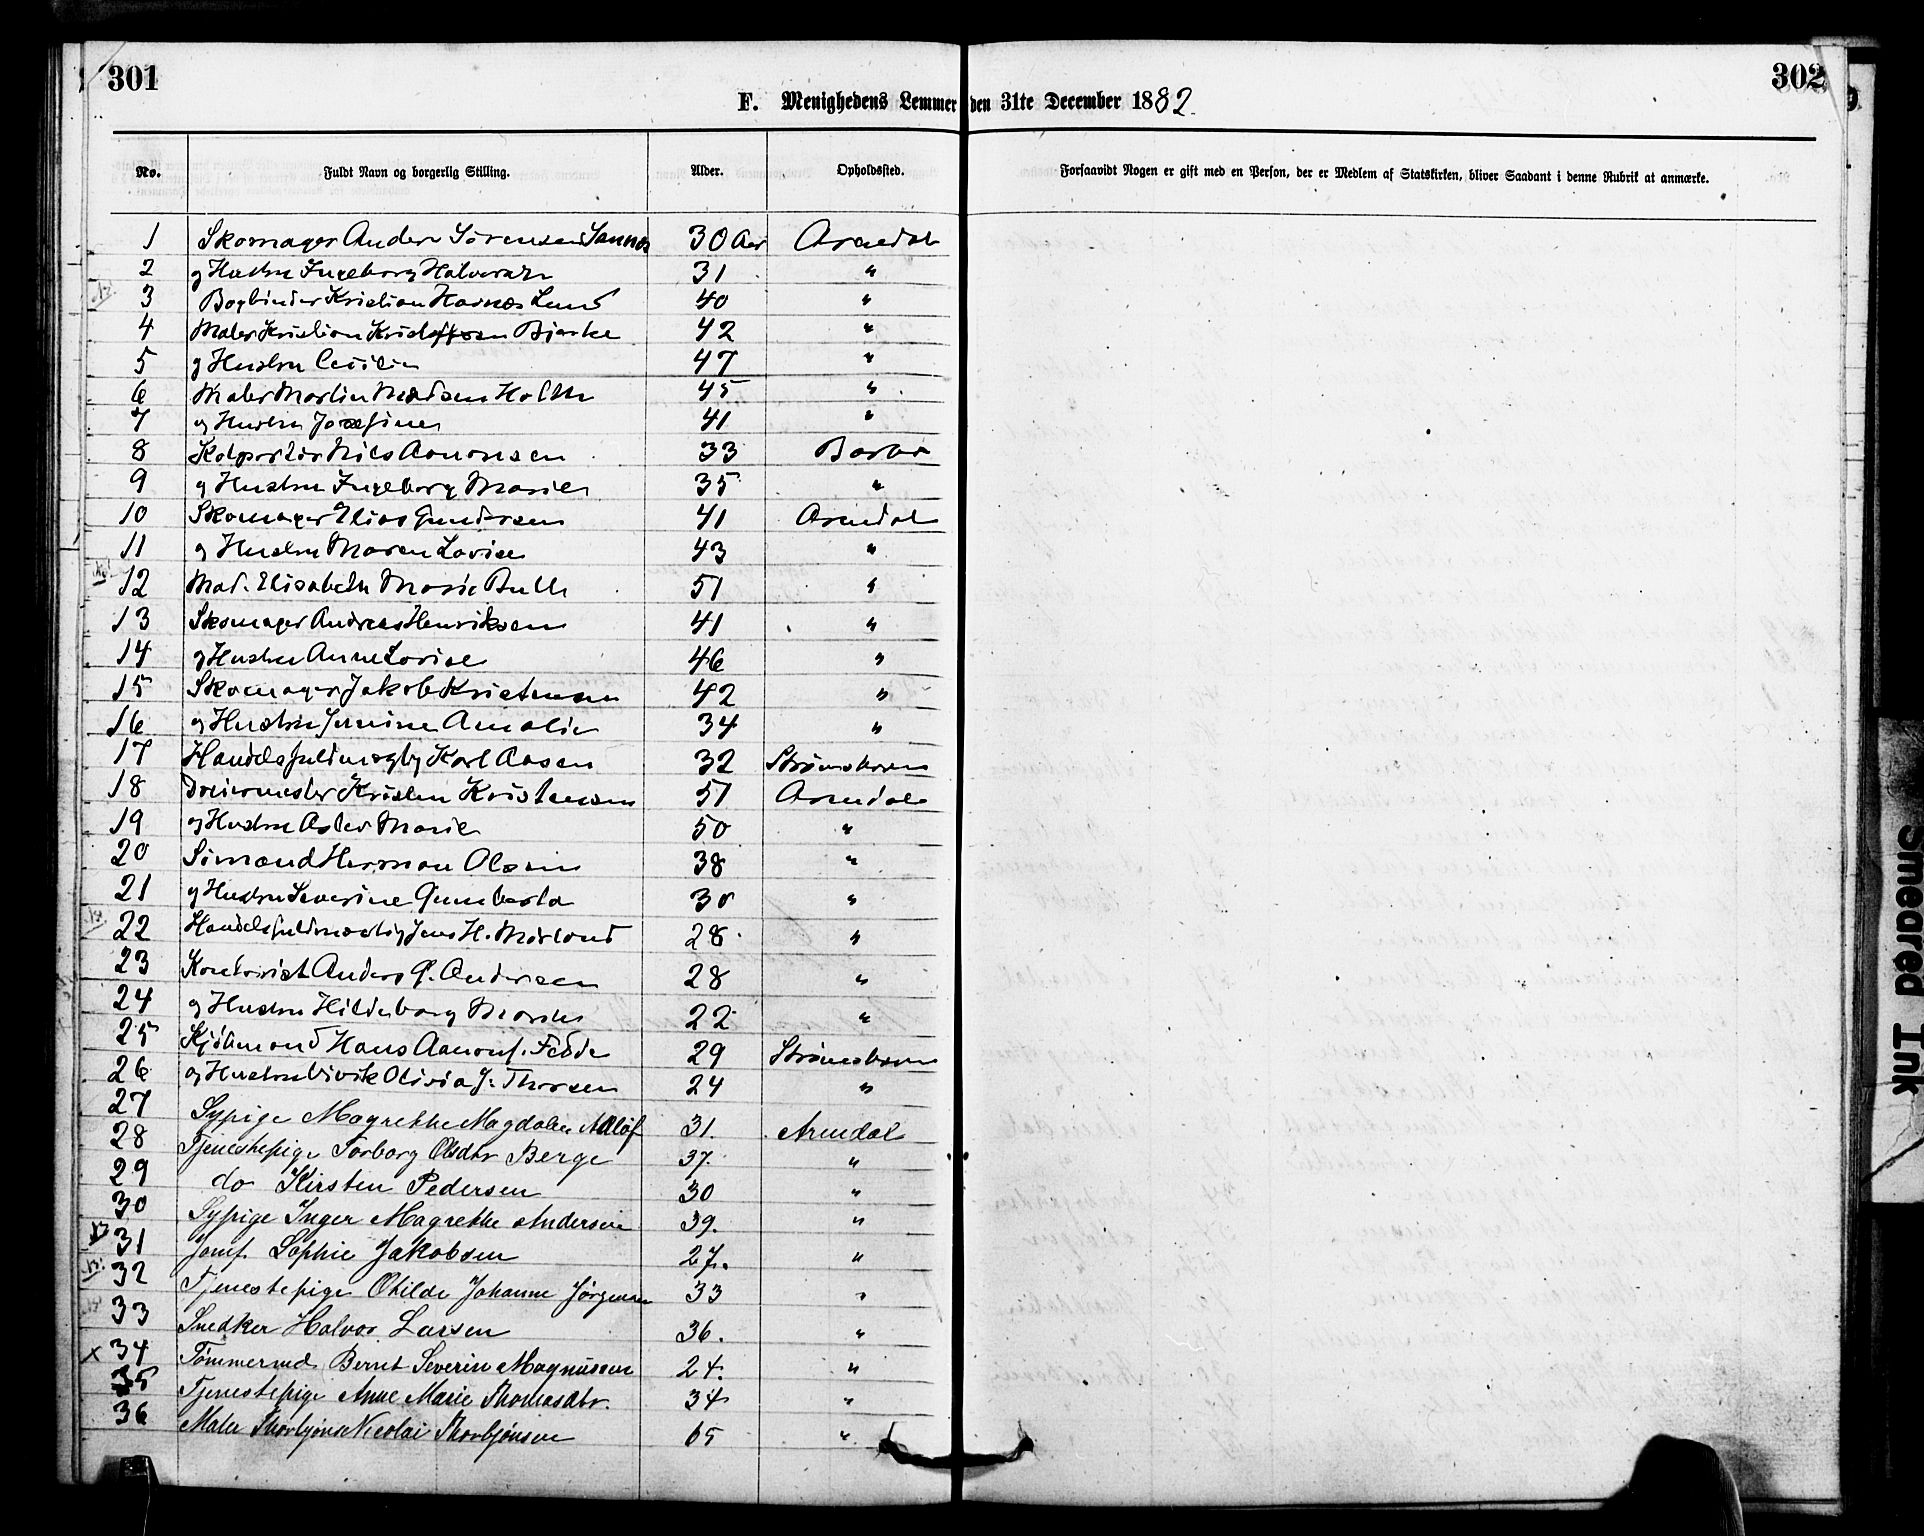 301
302
F. Menighedens Lemmer den 31te December 1882.
No. Fuldt Navn og borgerlig Stilling. Alder. Opholdssted. Forsaavidt Nogen er gift med en Person, der er Medlem af Statskirken, bliver Saadant i denne Rubrik at anmærke.
1 Skomager Anders Sörensen Sannes 30 Aar Arendal
2 og Hustru Ingeborg Halvorsdtr 31 "
3 Bogbinder Kristian Lund 40 "
4 Maler Kristian Kristoffersen Bjerke 42 "
5 og Hustru Cecilie 47 "
6 Maler Martin Madsen Holth 45 "
7 og Hustru Josefine 41 "
8 Kolportør Nils Aanonsen 33 Barbo
9 og Hustru Ingeborg Marie 35 "
10 Skomager Elias Gundersen 41 Arendal
11 og Hustru Maren Lovise 43 "
12 Mad. Elisabeth Marie Bull 51 "
13 Skomager Andreas Henriksen 41 "
14 og Hustru Anne Lovise 46 "
15 Skomager Jakob Kristensen 42 "
16 og Hustru Jensine Amalie 34 "
17 Handelsfuldmægtig Karl Aasen 32 Strømsboen
18 Dreiermester Kristen Kristensen 51 Arendal
19 og Hustru Marie 50 "
20 Sömand Herman Olsen 38 "
21 og Hustru Severine Gunberta 30 "
22 Handelsfuldmægtig Jens H. Mörland 28 "
23 Kontorist Anders G. Andersen 28 "
24 og Hustru Hildeborg 22 "
25 Kjöbmand Hans Aanons. Fedde 29 Strömsboen
26 og Hustru Olivia J. Thorsen 24 "
27 Sypige Magrethe Magdalene 31. Arendal
28 Tjenestepige Torborg Olsdtr Berge 37. "
29 do Kirsten Pedersen 30 "
30 Sypige Inger Magrethe Andersen 39. "
31 Jomf. Sophie Jakobsen 27. "
32 Tjenestepige Otilde Johanne Jörgensen 33 "
33 Snedker Halvor Larsen 36. "
x 34 Tömmermd. Bernt Severin Magnussen 24. "
35 Tjenestepige Anne Marie Thomasdtr. 34 "
36 Maler Thorbjörn Nicolai Thorbjönsen 65 "
Smeared Ink